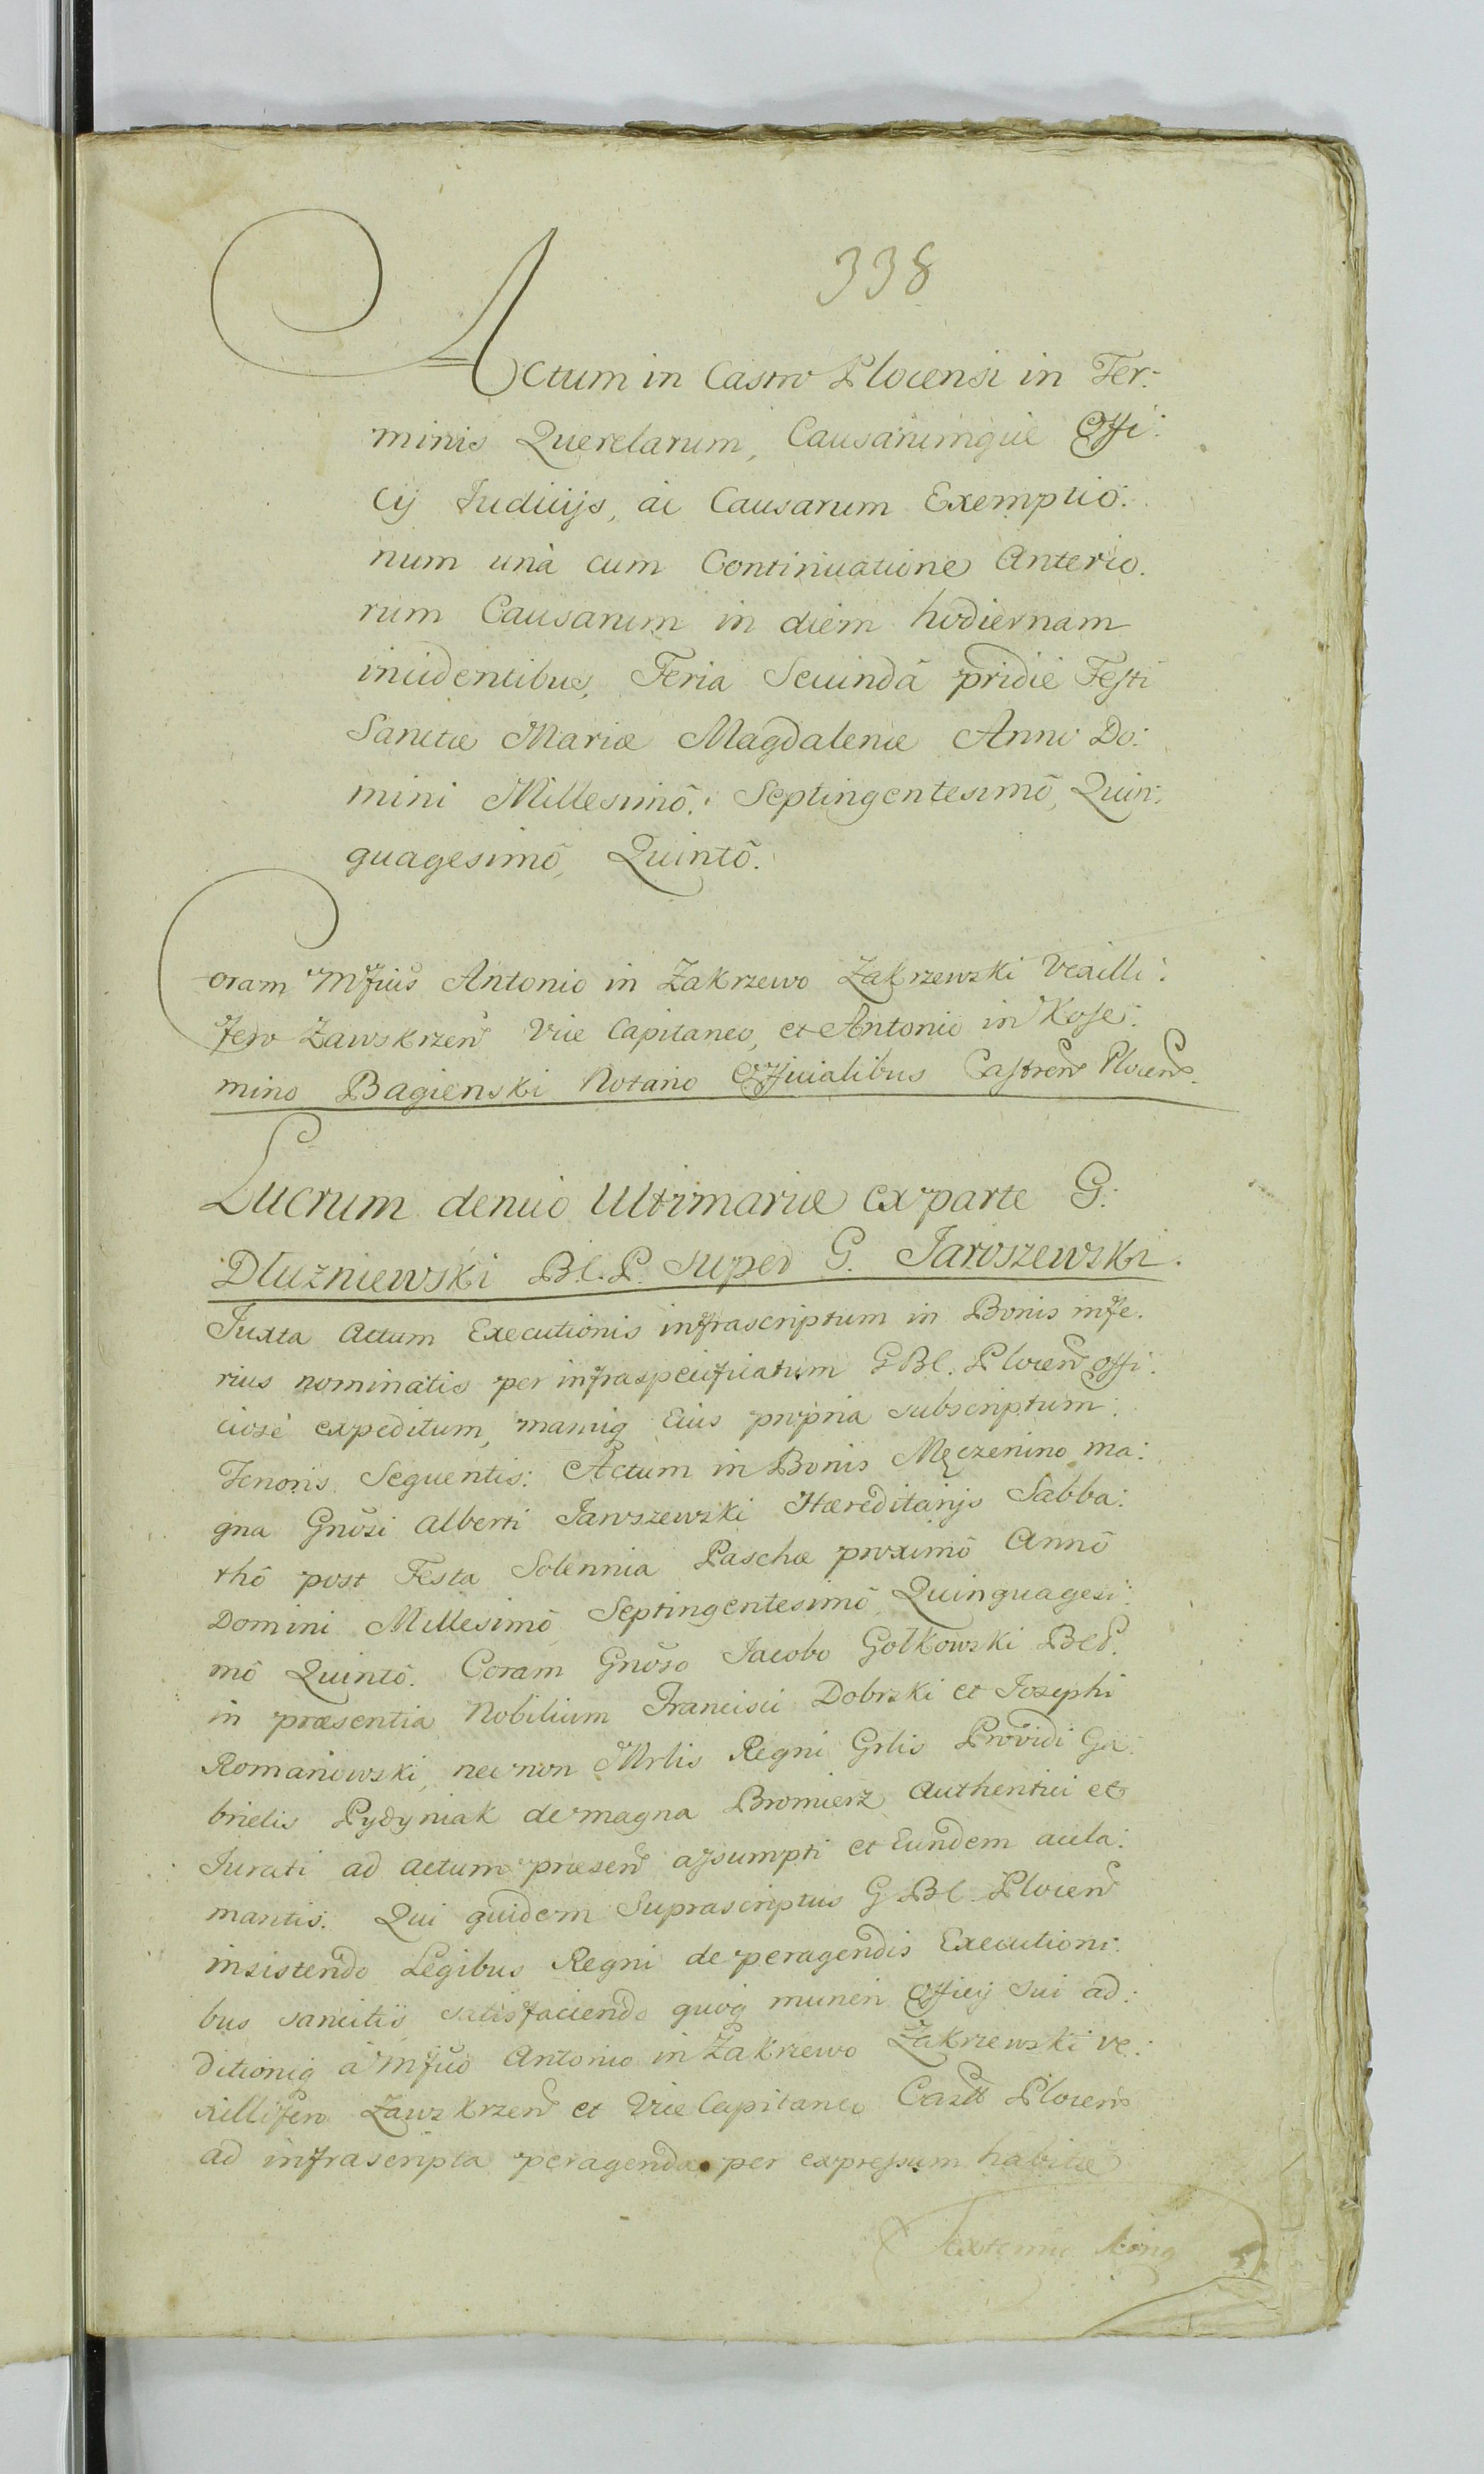 338
Actum in Castro Plocensi in Ter:
minis Querelarum, Causarumque Offi:
cij Judicijs, ac Causarum Exemptio:
num unà cum Continuatione Anterio.
rum Causarum in diem hodiernam
incidentibus, Feria Secundâ pridie Festi
Sanctæ Mariæ Magdalenæ Anno Do:
mini Millesimô, Septingentesimô, Quin:
quagesimô, Quintô.
Coram Mfius Antonio in Zakrzewo Zakrzewski Vexilli:
fero Zawskrzen Vice Capitaneo, et Antonio in Kose:
mino Bagienski Notario Officialibus Castren Plocens.
Lucrum denuo Ultimariæ ex parte G:
Dluzniewski B.C.P. super G. Jaroszewski.
Juxta Actum Executionis infrascriptum in Bonis infe.
rius nominatis per infraspecificatum G B C. Plocen offi:
ciosè expeditum, manuq Eius propria subscriptum:
Tenoris Sequentis: Actum in Bonis Męczenino ma:
gna Gnosi Alberti Jaroszewski Hæreditarijs Sabba:
thô post Festa Solennia Paschæ proximô Annô
Domini Millesimô Septingentesimô, Quinquagesi:
mô Quintô. Coram Gnoso Jacobo Gołkowski BCP.
in præsentia Nobilium Francisci Dobrski et Josephi
Romanowski, nec non Mrlis Regni Grlis Providi Ga:
brielis Pydyniak de magna Bromierz Authentici et
Jurati ad actum præsen assumpti et Eundem acla:
mantis. Qui quidem Suprascriptus G B C. Plocen
insistendo Legibus Regni de peragendis Executioni:
bus sancitis satisfaciendo quoq muneri Officij sui ad:
ditioniq à Mfico Antonio in Zakrzewo Zakrzewski Ve:
xillifero Zawskrzen et Vice Capitaneo Castr Plocens
ad infrascripta peragenda per expressum habitæ